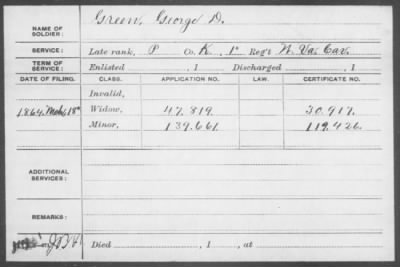 Green, George D.
NAME OF SOLDIER:
SERVICE: Late rank, P Co. K, 1st Reg't W. Va. Cav.
TERM OF SERVICE: Enlisted , 1 Discharged , 1
DATE OF FILING. CLASS. APPLICATION NO. LAW. CERTIFICATE NO.
Invalid,
1864 Mch 18th Widow, 47.819. 30.917.
Minor, 139.661. 119.426.
ADDITIONAL SERVICES:
REMARKS:
Died , 1 , at